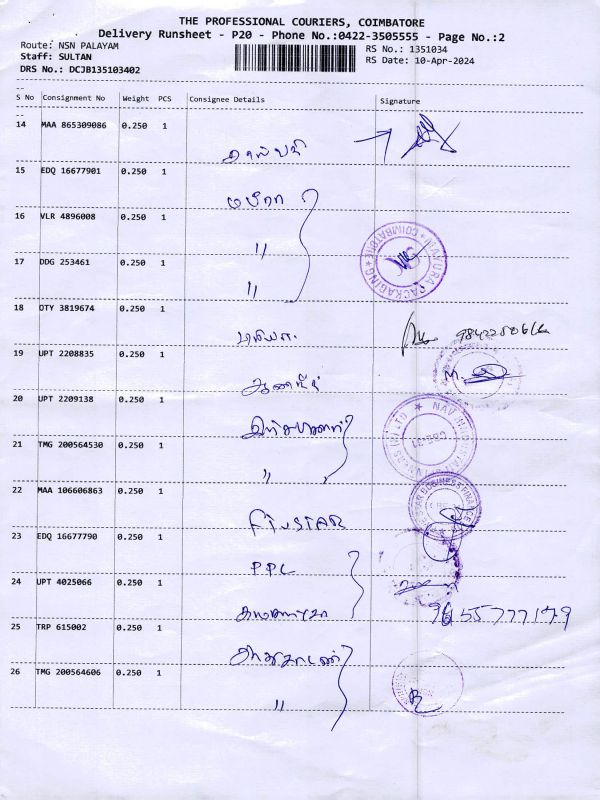 THE PROFESSIONAL COURIERS, COIMBATORE
Delivery Runsheet - P20 - Phone No.:0422-3505555 - Page No.:2
Route: NSN PALAYAM RS No.: 1351034
Staff: SULTAN RS Date: 10-Apr-2024
DRS No.: DCJB135103402
S No Consignment No Weight PCS Consignee Details Signature
14 MAA 865309086 0.250 1
15 EDQ 16677901 0.250 1
மயூரா
16 VLR 4896008 0.250 1
"
NAYURA PACKAGING ★ COIMBATORE ★
17 DDG 253461 0.250 1
"
18 OTY 3819674 0.250 1
19 UPT 2208835 0.250 1
ஆனந்த்
20 UPT 2209138 0.250 1
21 TMG 200564530 0.250 1
"
22 MAA 106606863 0.250 1
FIVESTAR
STAR BUSINESS FINANCE
23 EDQ 16677790 0.250 1
PPC
24 UPT 4025066 0.250 1
9655777179
25 TRP 615002 0.250 1
26 TMG 200564606 0.250 1
"